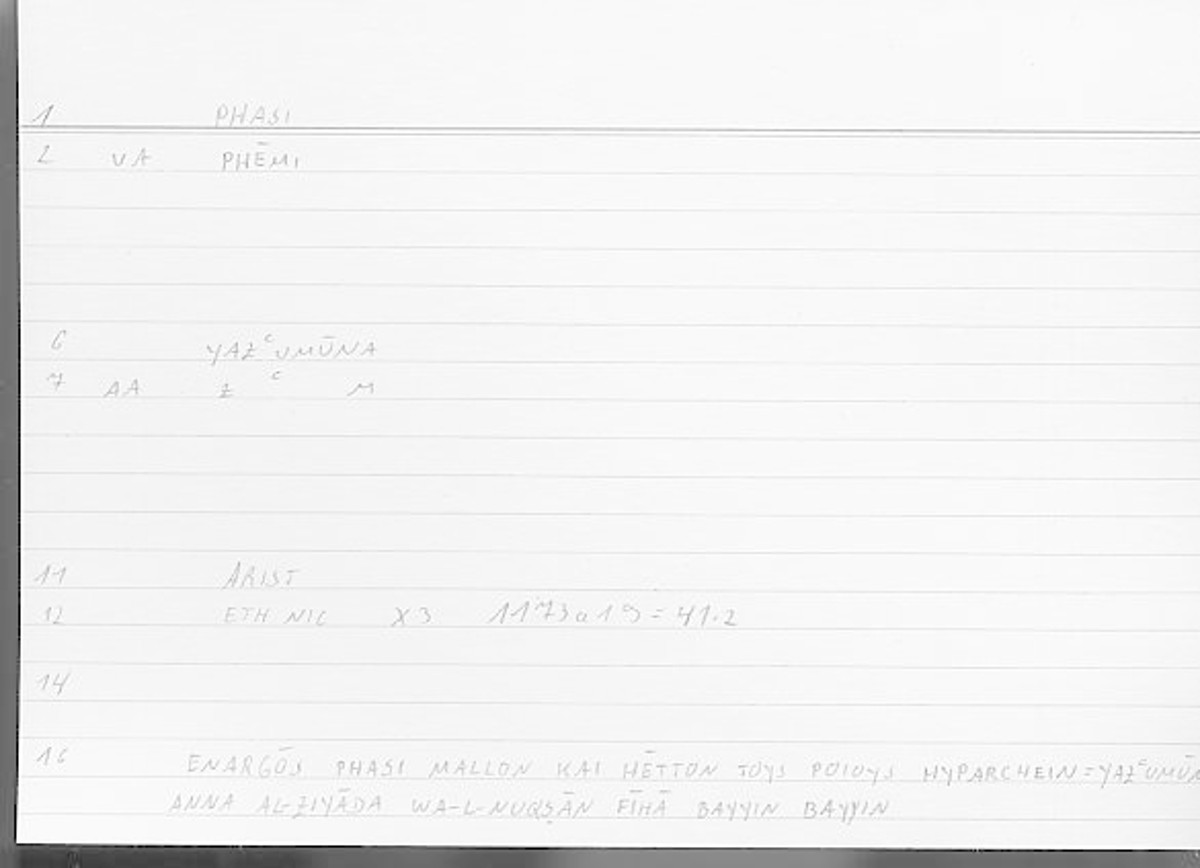 1 PHASI
2 VA PHĒMI
6 YAZᶜUMŪNA
7 AA Z ᶜ M
11 ARIST
12 ETH NIC X3 1173a19=41.2
14
16 ENARGŌS PHASI MALLON KAI HĒTTON TOYS POIOYS HYPARCHEIN=YAZᶜUMŪN
ANNA AL-ZIYĀDA WA-L-NUQṢĀN FĪHĀ BAYYIN BAYYIN